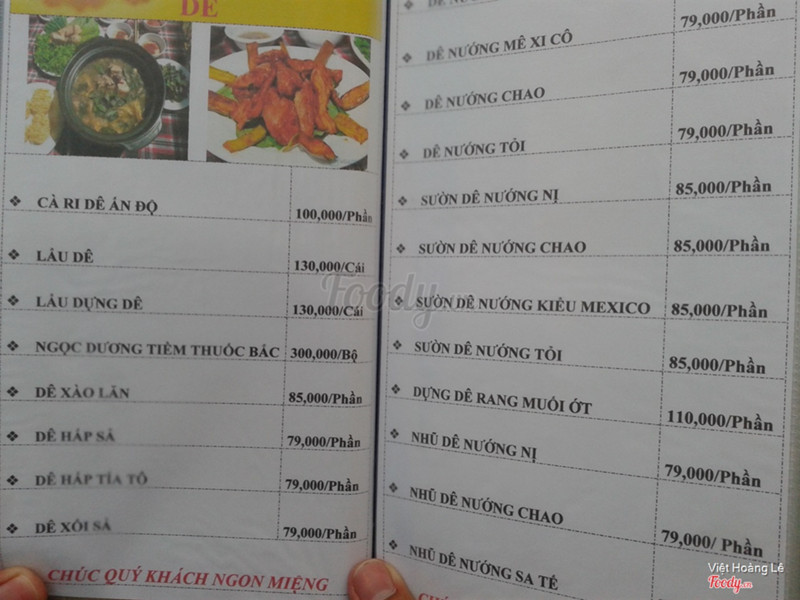 DÊ
CÀ RI DÊ ẤN ĐỘ 100,000/Phần
LẨU DÊ 130,000/Cái
LẨU DỰNG DÊ 130,000/Cái
NGỌC DƯƠNG TIỀM THUỐC BẮC 300,000/Bộ
DÊ XÀO LĂN 85,000/Phần
DÊ HẤP SẢ 79,000/Phần
DÊ HẤP TÍA TÔ 79,000/Phần
DÊ XÔI SẢ 79,000/Phần
CHÚC QUÝ KHÁCH NGON MIỆNG
79,000/Phần
DÊ NƯỚNG MÊ XI CÔ 79,000/Phần
DÊ NƯỚNG CHAO 79,000/Phần
DÊ NƯỚNG TỎI
SƯỜN DÊ NƯỚNG NỊ 85,000/Phần
SƯỜN DÊ NƯỚNG CHAO 85,000/Phần
SƯỜN DÊ NƯỚNG KIỂU MEXICO 85,000/Phần
SƯỜN DÊ NƯỚNG TỎI 85,000/Phần
DỰNG DÊ RANG MUỐI ỚT 110,000/Phần
NHŨ DÊ NƯỚNG NỊ 79,000/Phần
NHŨ DÊ NƯỚNG CHAO 79,000/ Phần
NHŨ DÊ NƯỚNG SA TẾ
Foody
Việt Hoàng Lê
Foody.vn